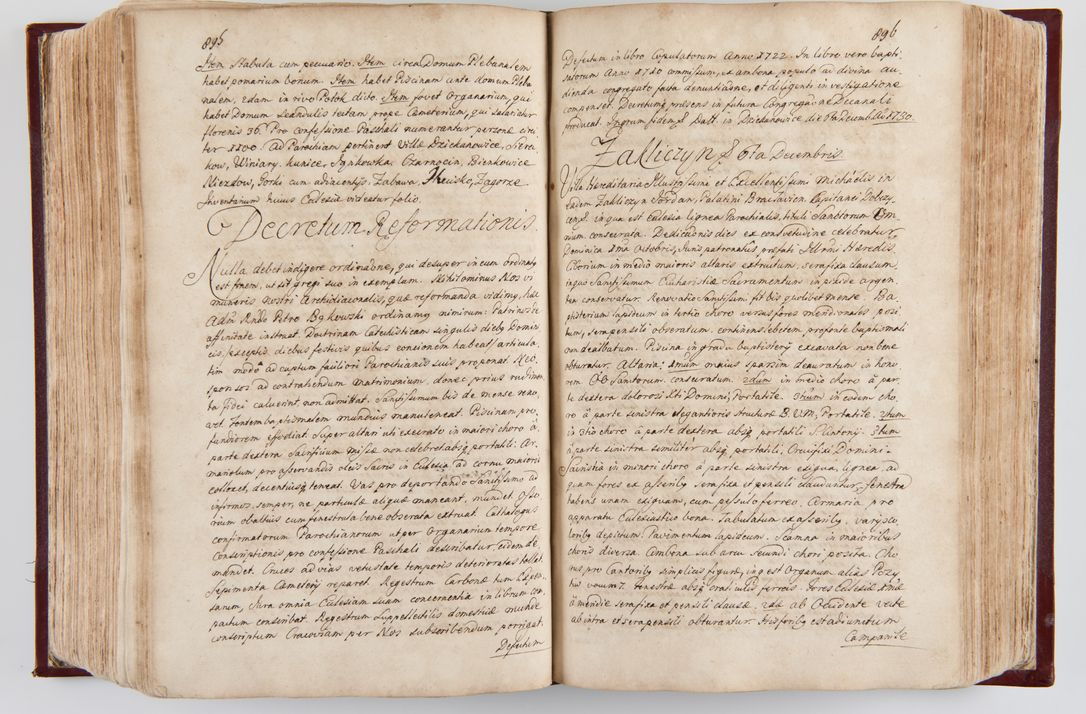 895
Item Stabula cum pecuario. Item circa Domum Plebanalem
habet pomarium bonum. Item habet Piscinam ante domum Pleba
nalem, 2dam in rivo Potok dito. Item fovet Organarium, qui
habet Domum Scandulis tectam prope Cæmeterium, qui salariatur
florenis 36. Pro confessione Paschali numerantur personæ circi
ter 1100. ad Parochiam pertinent Villæ Dziekanowice, Sierc
kow, Winiary. Kunice, Sankowka, Czarnocin, Bienkowice
Niezdow, Gorki cum adiacentijs, Zabawa, Zagorze
Inventarium huius Ecclesiæ videatur folio.
Decretum Reformationis.
Nulla debet indigere ordinatione, qui desuper in eum ordinatus
est finem, ut sit gregi suo in exemplum. Nihilominus Nos vi
muneris nostri Archidiaconalis, quæ reformanda vidimus, hæc
Adm Rndo Petro Bąkowski ordinamus nimirum: Patrinos de
affinitate instruat. Doctrinam Catechisticam singulis diebus Domini
cis, exceptis diebus festivis quibus concionem habeat articula
tim modo ad captum faciliori Parochianis suis proponat. Neo
sponsos ad contrahendum matrimonium, donec prius rudimen
ta fidei calverint non admittat. Sanctissimum bis de mense reno
vet. Fontem baptismalem mundius manuteneat. Piscinam pro
fundiorem effodiat. Super altari uti execrato in maiori choro à
parte dextera Sacrificium missæ non celebret absq portatili. Ar
mariolum pro asservandis oleis Sacris in Ecclesia ad cornu maioris
collocet, decentiusq teneat. Vas pro deportando Sanctissimo ad
infirmos semper, ne particulæ aliquæ maneant, mundet. Osso
rium obaltius cum fenestrula bene obserata extruat. Cathalogus
confirmatorum Parochianorum ut per Organarium tempore
Conscriptionis pro confessione Paschali describatur, eidem de
mandet. Cruces ad vias vetustate temporis deterioratas tollat.
Sepimenta Cæmeterij reparet. Regestrum Carbonæ tum Expen
sarum, Jura omnia Ecclesiam suam concernentia in librum com
pactum conscribat. Regestrum Suppellectilis domesticæ munde
conscriptum Cracoviam per Nos subscribendum porrigat.
Defectum
896
Defectum in libro Copulatorum Anno 1722. In libro vero bapti
satorum Anno 1710 commissum, ex ambona populo ad divina au
dienda congregato, facta denuntiatione, et diligenti investigatione
compenset. Decretumq præsens in futura Congregatione Decanali
producat. In quorum fidem Datt. in Dziekanowice die 6ta Decemb. Ao 1730.
Zakliczyn 6ta Decembris.
Villa Hereditaria Illustrissimi et Excellentissimi Michaelis in
eadem Zakliczyn Jordan, Palatini Braclavien. Capitanei Dobczy
cen in qua est Ecclesia lignea Parochialis, tituli Sanctorum Om
nium consecrata. Dedicationis dies ex consvetudine celebratur
Dominica 1ma Octobris, Juris patronatus, præfati Illrmi Hæredis.
Ciborium in medio maioris altaris extructum, serafixa clausum,
in quo Sanctissimum Eucharistiæ Sacramentum in pixide argen
tea conservatur. Renovatio Sanctissimi fit bis quolibet mense. Ba
ptisterium lapideum in tertio choro versus fores meridionales posi
tum, sera pensili obseratum. continens lebetem pro fonte baptismali
non dealbatum. Piscina in gradu baptisterij excavata non bene
obturatur. Altaria, 1mum maius sparsim deauratum in hono
rem OO Sanctorum. consecratum. 2dum in medio choro à par
te dextera dolorosissimi Domini, Portatile. 3tium in eodem cho
ro à parte sinistra elegantioris structuræ B.V.M, Portatile. 4tum
in 3tio choro à parte dextera absq portatili S. Antonij. 5tum
à parte sinistra similiter absq portatili, Crucifixi Domini.
Sacristia in minori choro à parte sinistra exigua, lignea, ad
quam fores ex asseribus serafixa et pensili clauduntur, fenestra
habens unam exiguam, cum pessulo ferreo. Armaria pro
apparatu Ecclesiastico bona. Tabulatum ex asseribus varijs co
loribus depictum. Pavimentum lapideum. Scamna in maioribus
choris diversa. Ambona sub arcu secundi chori posita. Cho
rus pro Cantoribus simplicis figuræ, in quo est Organum alias Pozy
tiw vocum 7. Fenestræ absq craticulis ferreis. Fores Ecclesiæ 1mæ
à meridie serafixa et pensili clausæ, 2dæ ab Occidente vecte
ab intra et sera pensili obturantur. His foribus est adiunctum
Campanile